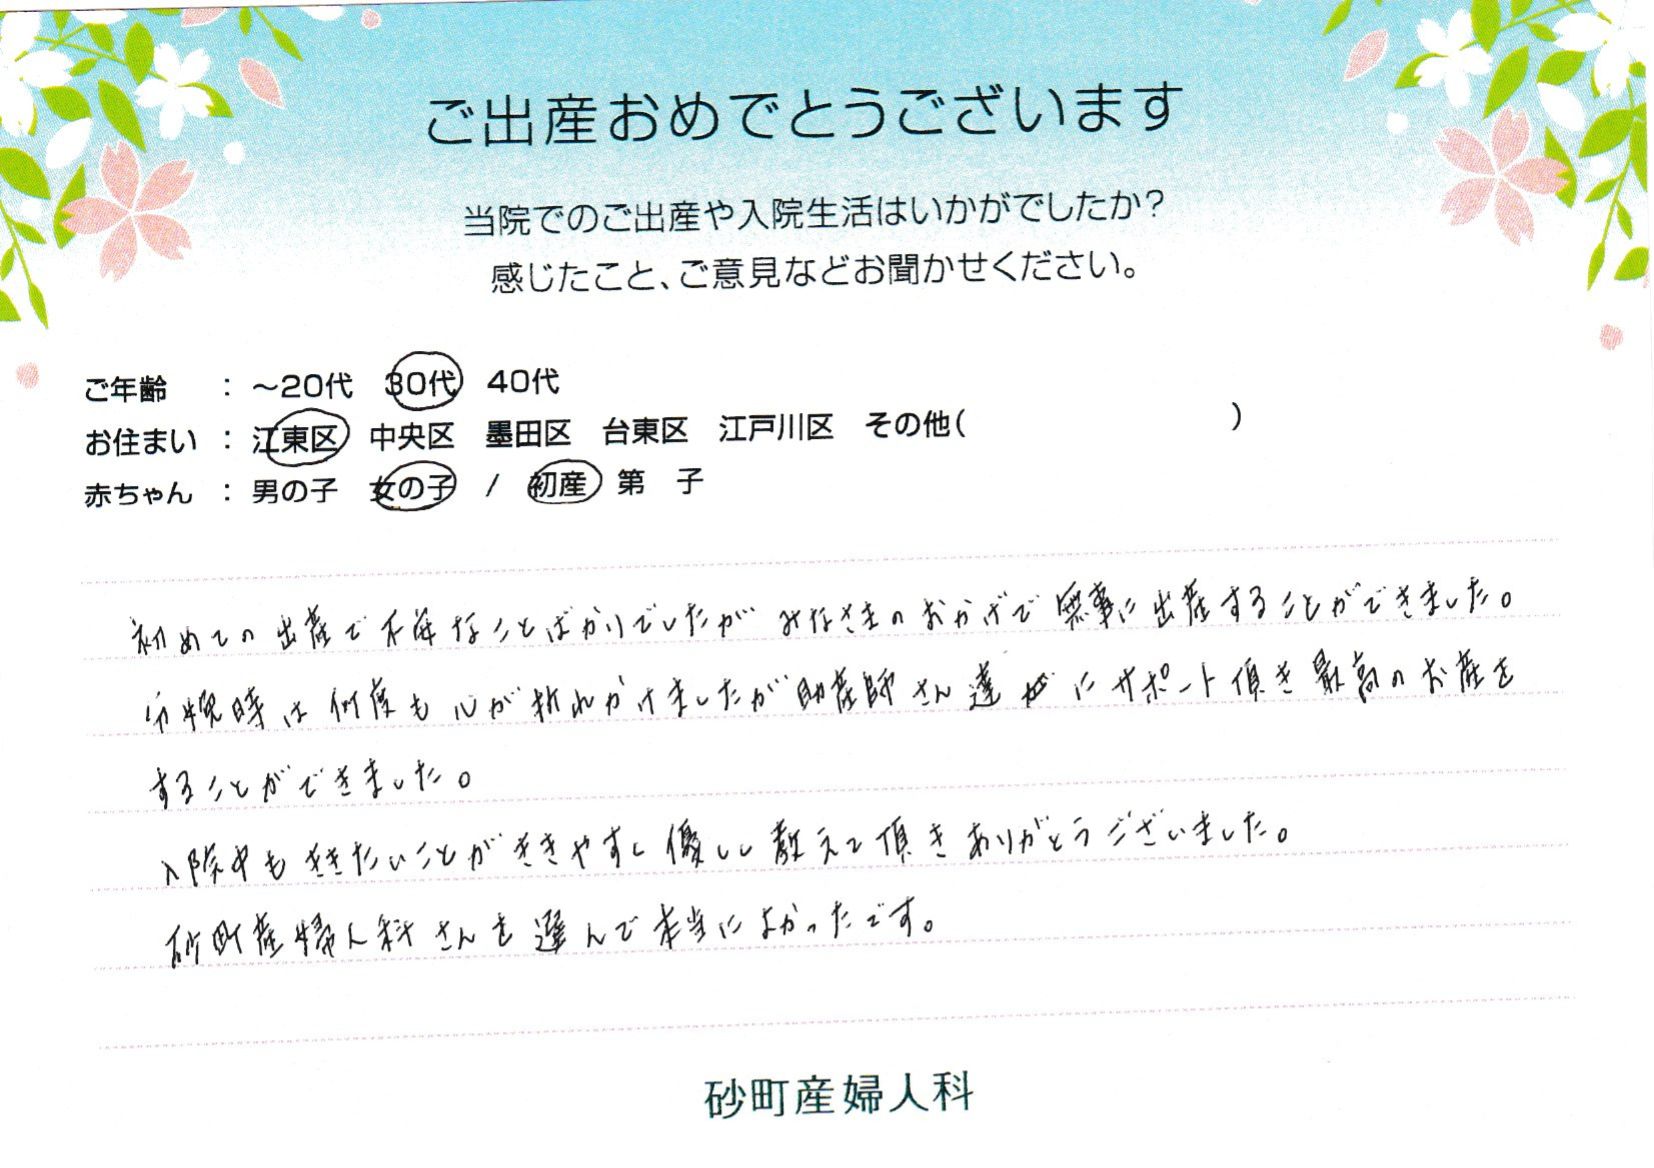 ご出産おめでとうございます
当院でのご出産や入院生活はいかがでしたか?
感じたこと、ご意見などお聞かせください。
ご年齢 : ～20代 30代 40代
お住まい : 江東区 中央区 墨田区 台東区 江戸川区 その他( )
赤ちゃん : 男の子 女の子 / 初産 第 子
初めての出産で不安なことばかりでしたがみなさまのおかげで無事に出産することができました。
分娩時は何度も心が折れかけましたが助産師さん達にサポート頂き最高のお産を
することができました。
入院中もききたいことがききやすく優しく教えて頂きありがとうございました。
砂町産婦人科さんを選んで本当によかったです。
砂町産婦人科